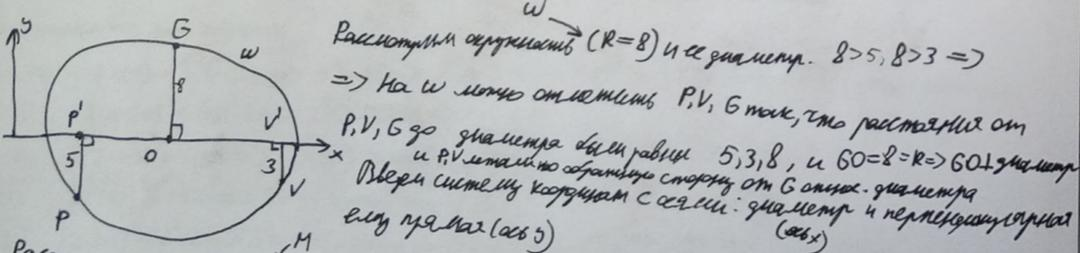 y
G
ω
8
P'
V'
5
O
3
x
P
V
M
ω
Рассмотрим окружность (R=8) и ее диаметр. 8>5, 8>3 =>
=> На ω можно отметить P, V, G так, что расстояния от
P, V, G до диаметра были равны 5, 3, 8, и GO=8=R=> GO⊥диаметр
и P, V лежали по обратную сторону от G относ. диаметра
Введем систему координат с осями: диаметр и перпендикулярная
(ось x)
ему прямая (ось y)